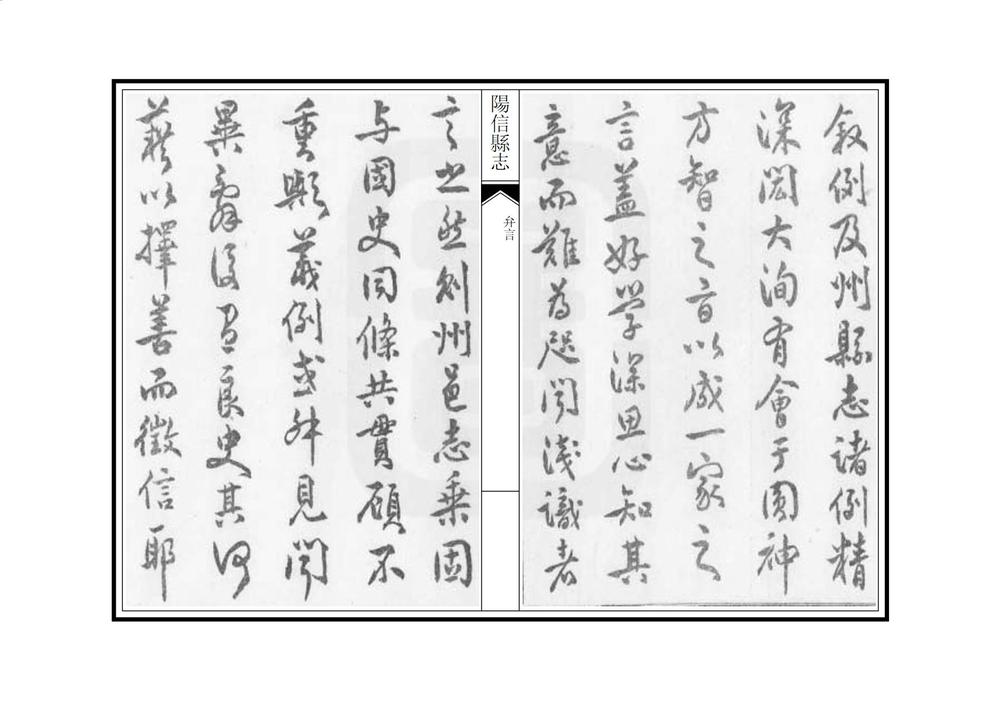 敘例及州縣志諸例精
深閎大洵有會于圓神
方智之旨以成一家之
言蓋好學深思心知其
意而難為咫聞淺識者
陽信縣志
弁言
言也然則州邑志乘固
与國史同條共貫顧不
重歟義例或舛見聞
異辭後有良史其何
藉以擇善而徵信耶